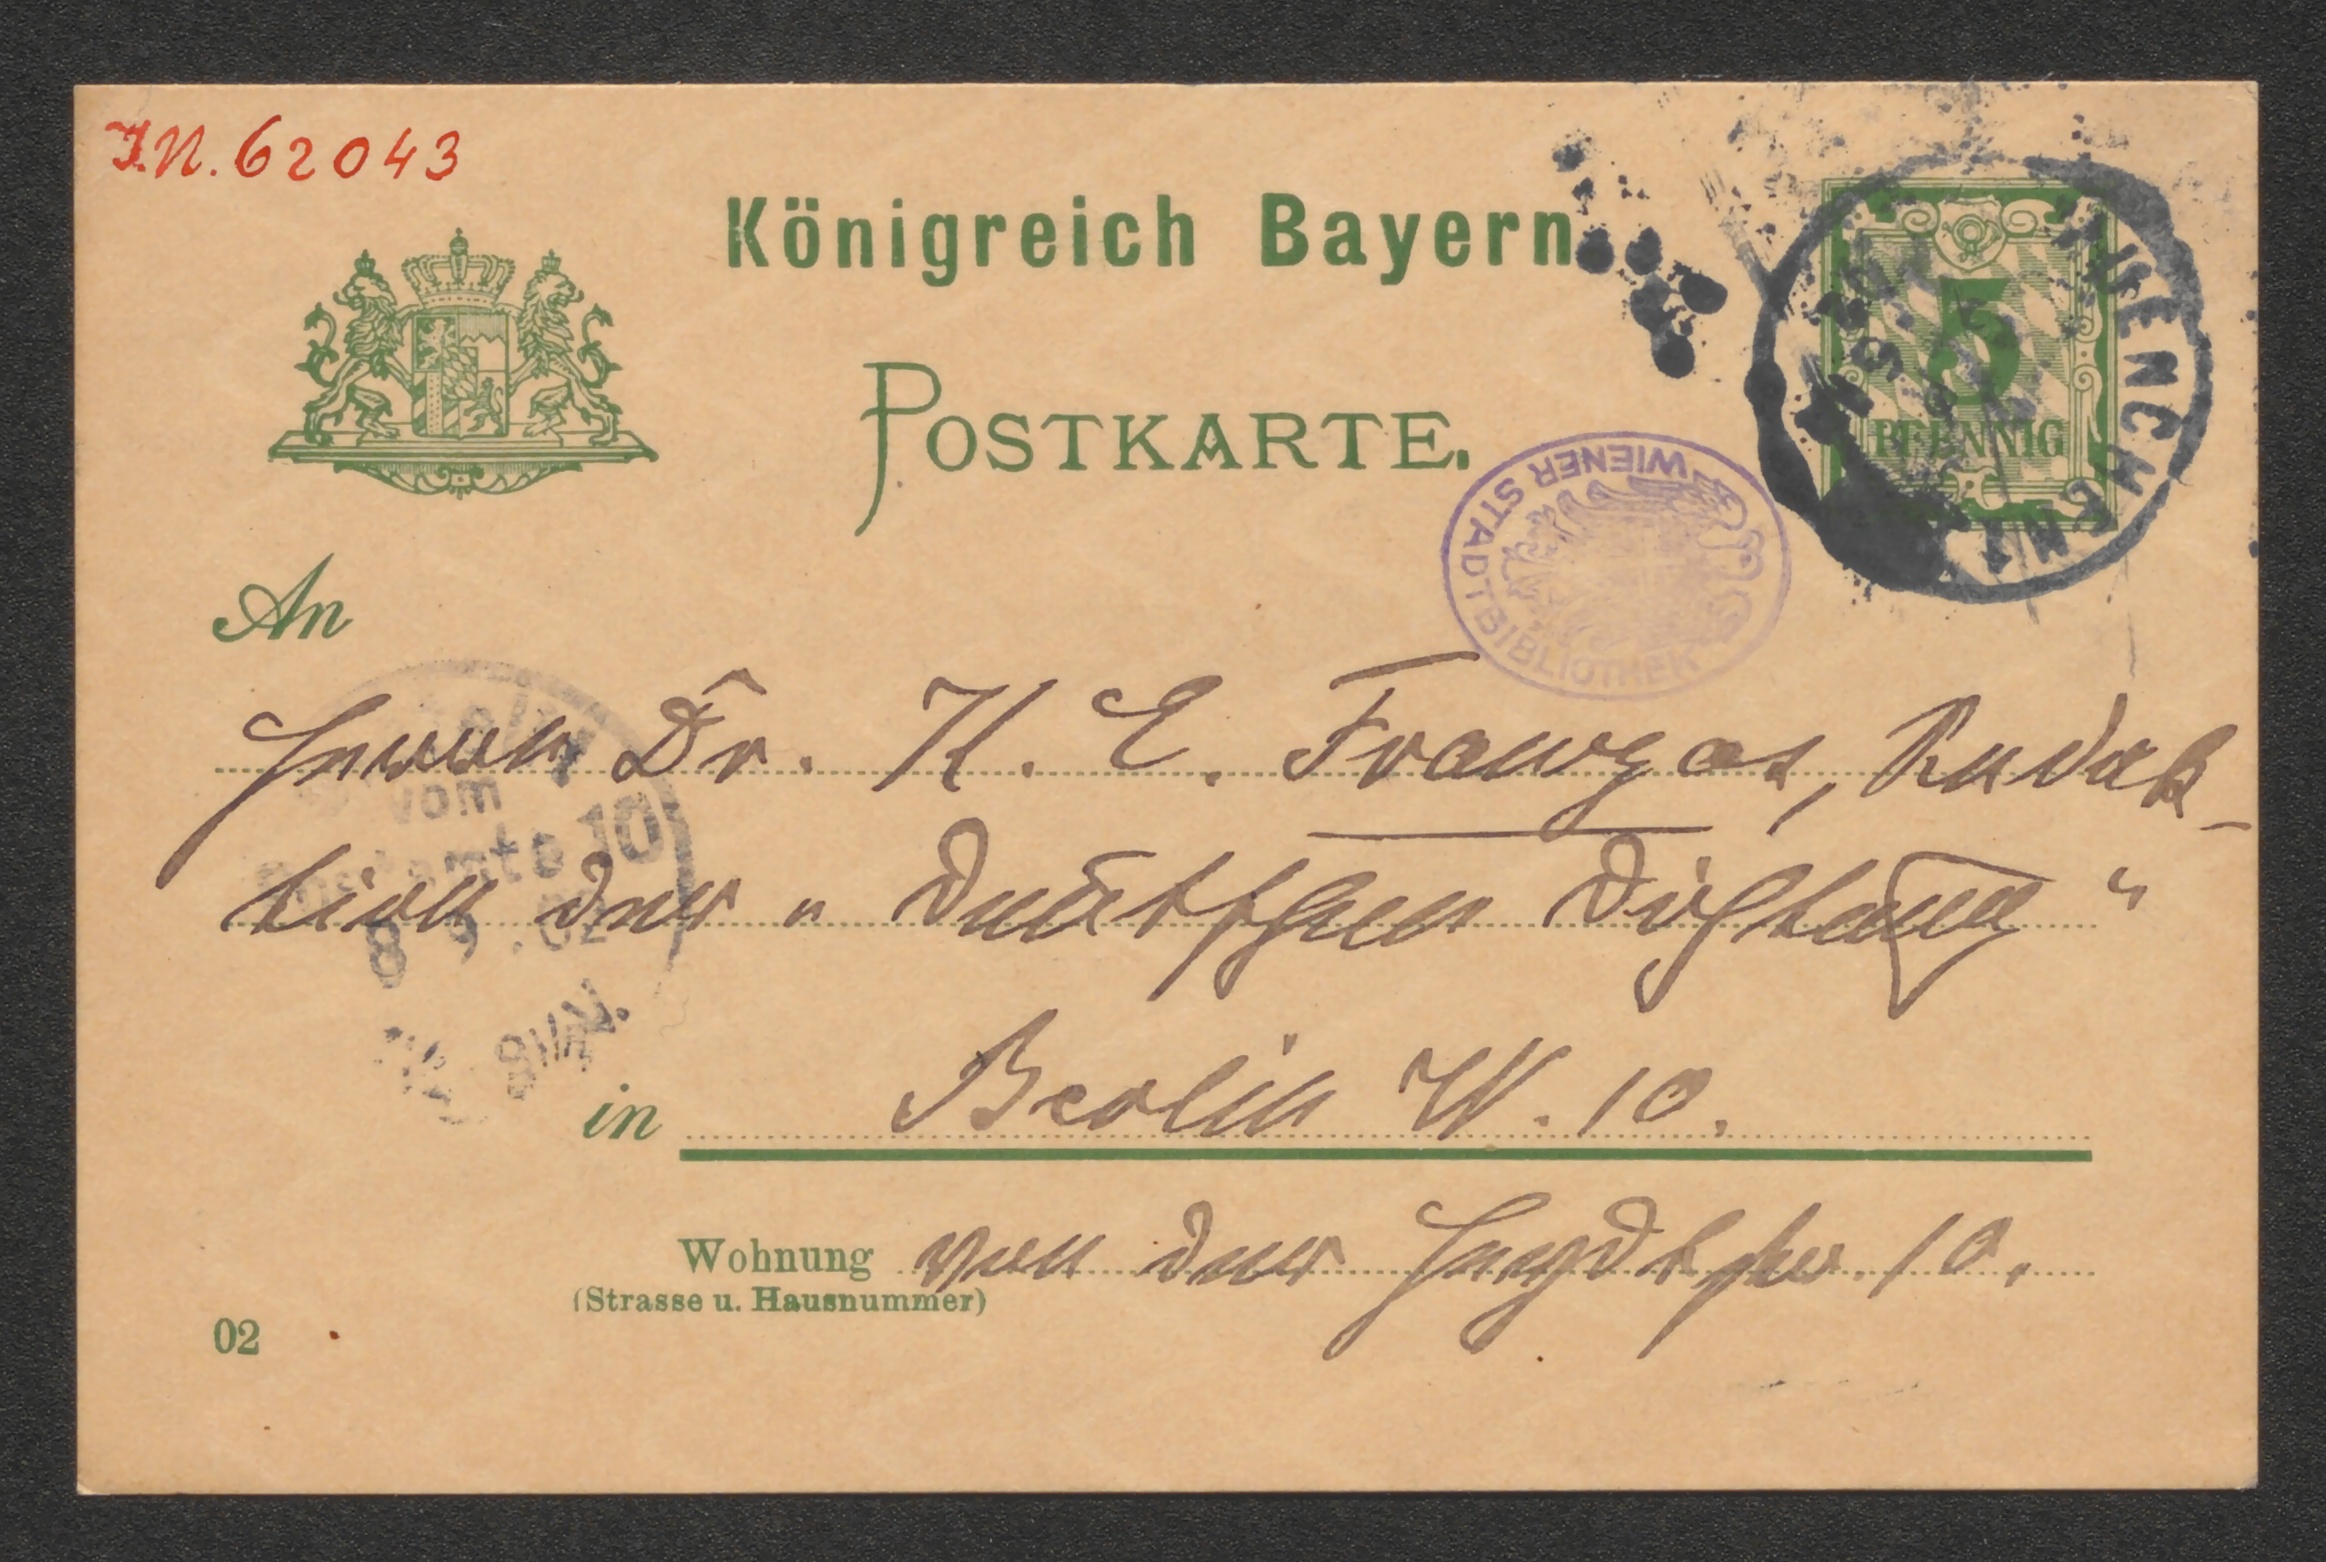 I.N. 62043
Königreich Bayern
POSTKARTE.
5
PFENNIG
MUENCHEN 1
WIENER STADTBIBLIOTHEK
An
Herrn Dr. K. E. Franzos, Redak-
tion der „Deutschen Dichtung"
vom
Postamte 10
8 9 . 02
8¼ V.
in Berlin W. 10.
Wohnung von der Heydtstr. 10.
(Strasse u. Hausnummer)
02